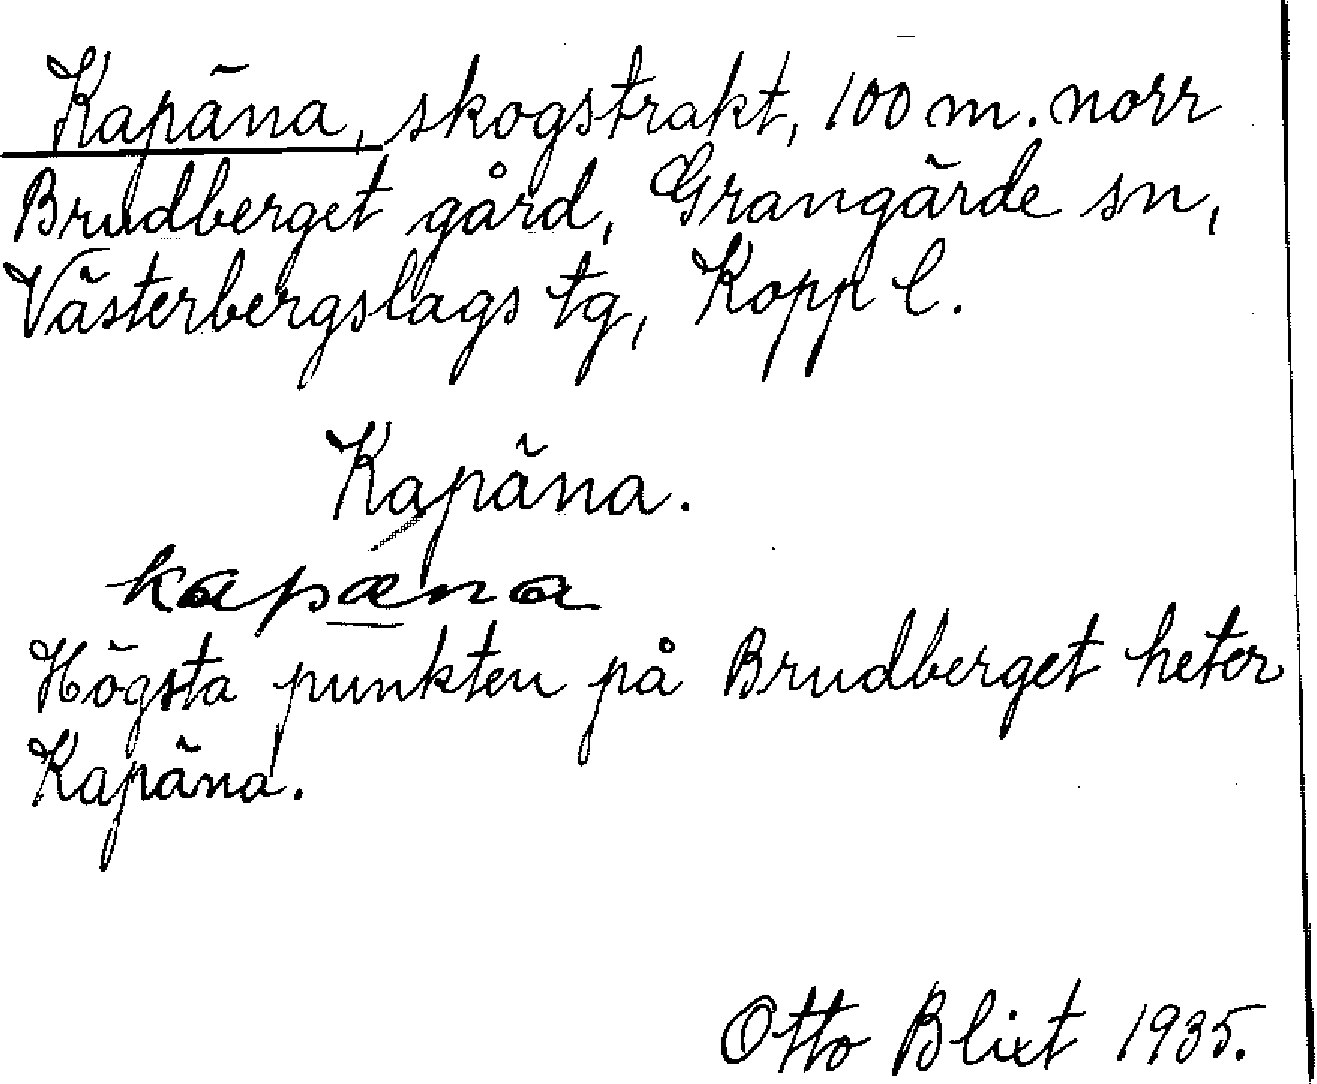 Kapäna, skogstrakt, 100 m. norr
Brudberget gård, Grangärde sn,
Västerbergslags tg, Kopp l.
Kapäna.
kapæna
Högsta punkten på Brudberget heter
Kapäna.
Otto Blixt 1935.